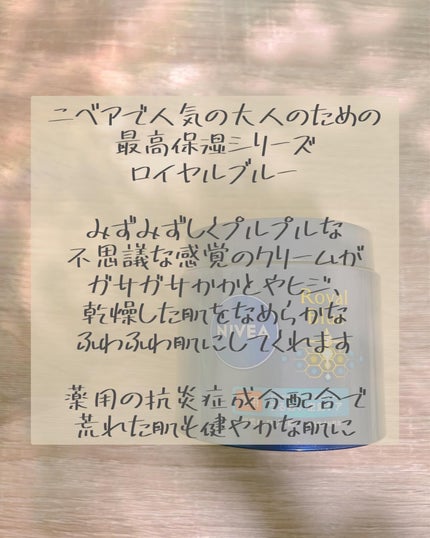 ニベアで人気の大人のための
最高保湿シリーズ
ロイヤルブルー
みずみずしくプルプルな
不思議な感覚のクリームが
ガサガサかかとやヒジ、
乾燥した肌をなめらかな
ふわふわ肌にしてくれます
薬用の抗炎症成分配合で
荒れた肌も健やかな肌に
Royal
NIVEA